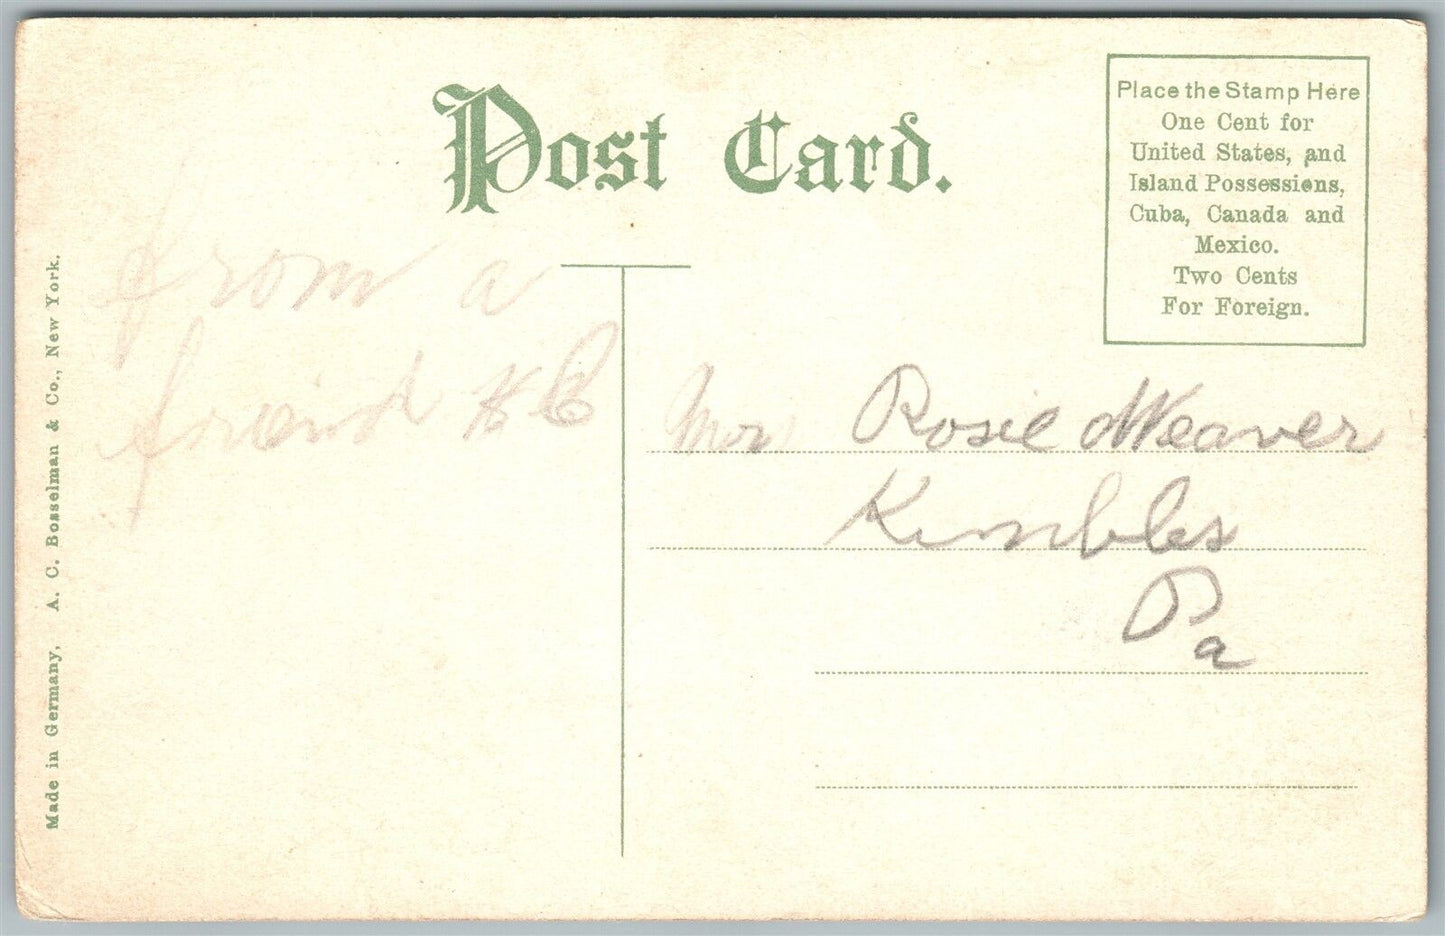 Post Card.
Place the Stamp Here
One Cent for
United States, and
Island Possessions,
Cuba, Canada and
Mexico.
Two Cents
For Foreign.
Made in Germany, A. C. Bosselman & Co., New York.
from a
friend
Rosie Weaver
Kimbles
Pa